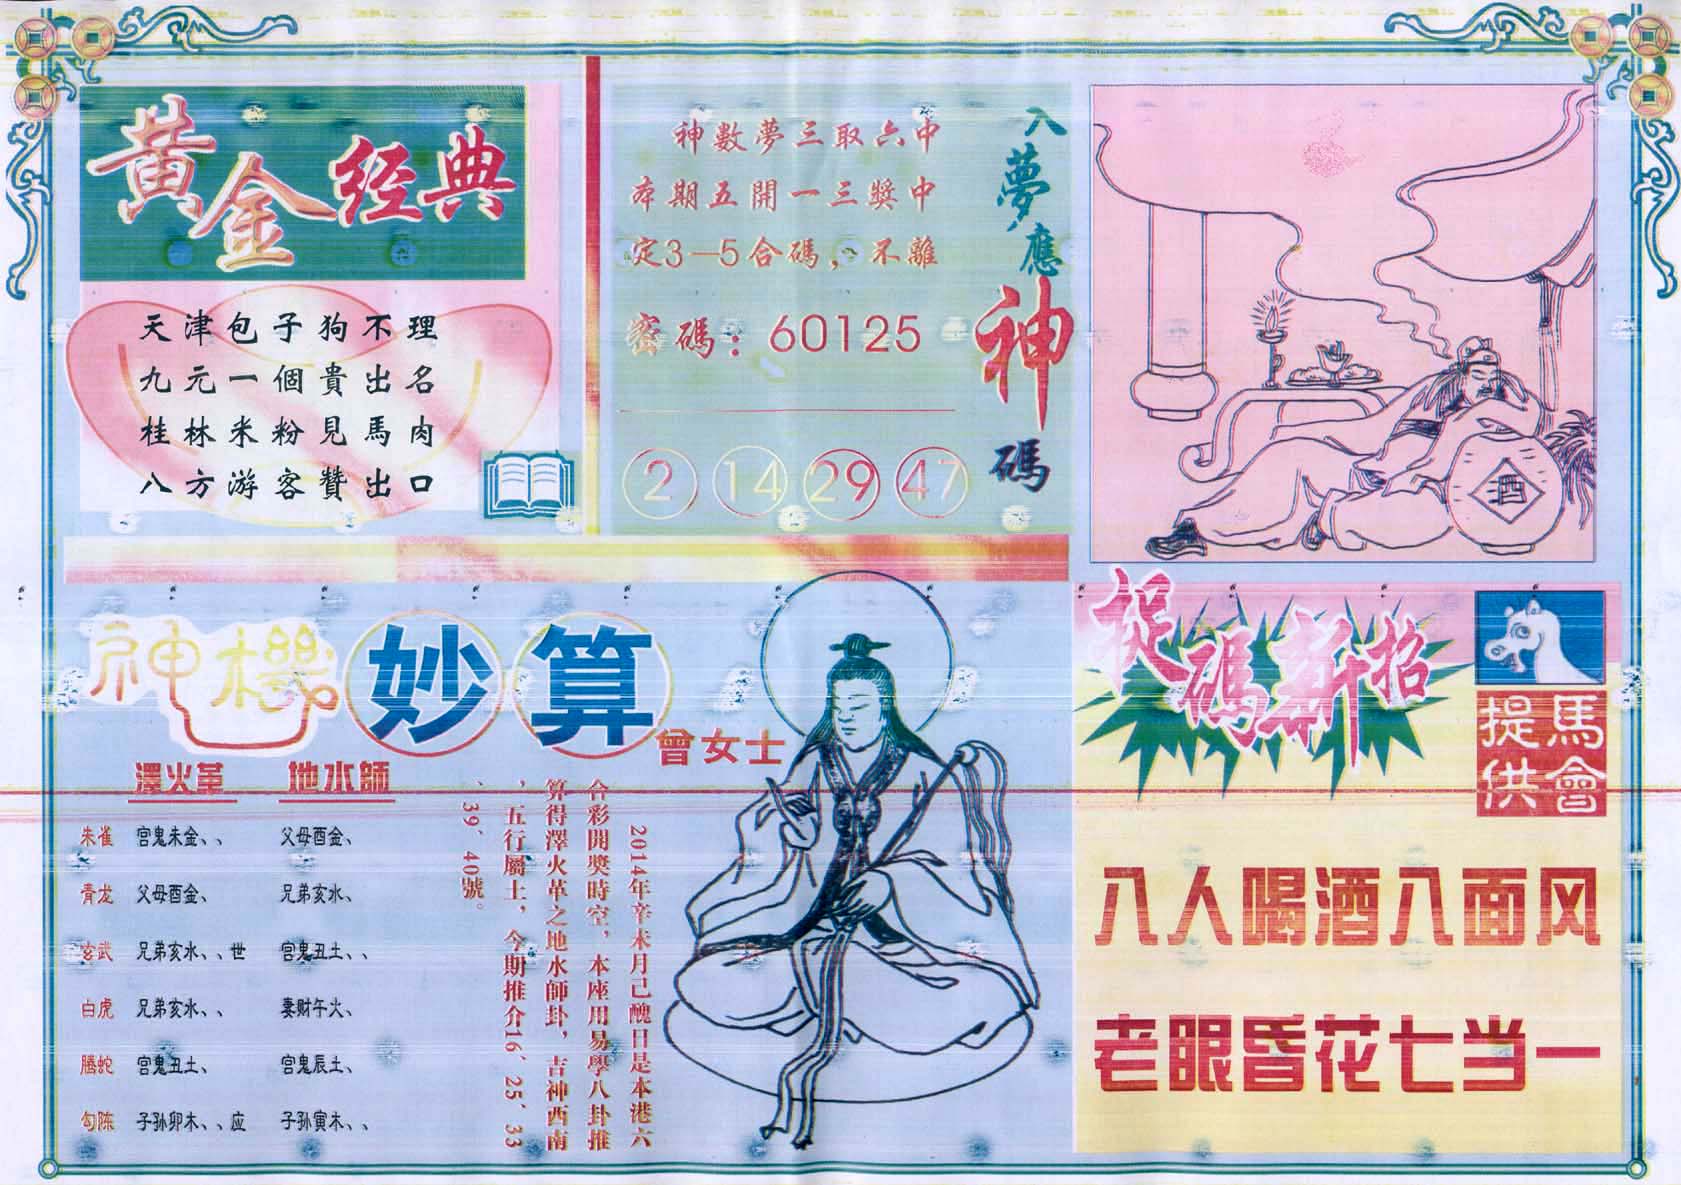 黄金经典
天津包子狗不理
九元一個貴出名
桂林米粉見馬肉
八方游客贊出口
入夢應神碼
神數夢三取六中
本期五開一三獎中
定3—5合碼，不離
密碼：60125
2 14 29 47
酒
神機妙算
曾女士
澤火革 地水師
朱雀 宫鬼未金、、 父母酉金、
青龙 父母酉金、 兄弟亥水、
玄武 兄弟亥水、、世 宫鬼丑土、、
白虎 兄弟亥水、、 妻财午火、
腾蛇 宫鬼丑土、 宫鬼辰土、
勾陈 子孙卯木、、应 子孙寅木、、
2014年辛未月己醜日是本港六
合彩開獎時空，本座用易學八卦推
算得澤火革之地水師卦，吉神西南
，五行屬土，今期推介16、25、33
、39、40號。
捉碼新招
馬會提供
八人喝酒八面风
老眼昏花七当一